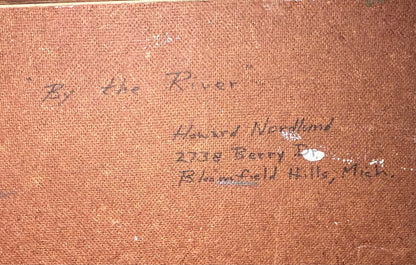 "By the River"
Howard Nordlund
2738 Berry Dr.
Bloomfield Hills, Mich.